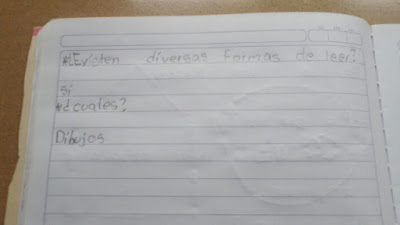 *¿Existen diversas formas de leer?
si
*¿cuales?
Dibujos